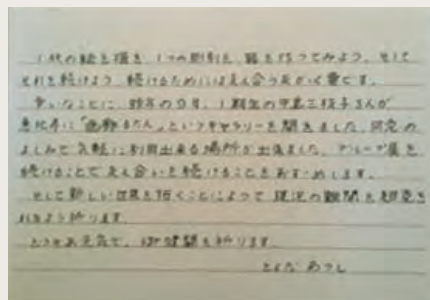 1枚の絵を描き 1つの彫刻に 鏝を打ってみよう、そして
それを続けよう 続けるためには支え合う友が必要です。
幸いなことに 昨年の9月、1期生の中島三枝子さんが
恵比寿に「画廊るたん」というギャラリーを開きました。同窓の
よしみで気軽に利用出来る場所が出来ました。グループ展を
続けることで支え合いを続けることをおすすめします。
そして新しい世界を拓くことによって 現況の難関を超克さ
れるよう祈ります。
どうぞお元気で、御健闘を祈ります。
とくだ あつし